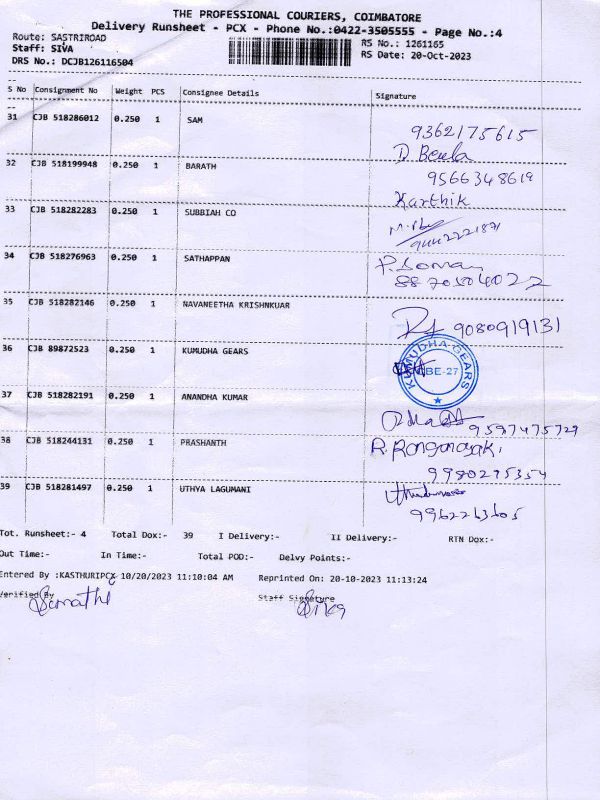 THE PROFESSIONAL COURIERS, COIMBATORE
Delivery Runsheet - PCX - Phone No.:0422-3505555 - Page No.:4
Route: SASTRIROAD
RS No.: 1261165
Staff: SIVA
RS Date: 20-Oct-2023
DRS No.: DCJB126116504
S No Consignment No Weight PCS Consignee Details Signature
31 CJB 518286012 0.250 1 SAM
9362175615
D. Beula
32 CJB 518199948 0.250 1 BARATH
9566348619
Karthik
33 CJB 518282283 0.250 1 SUBBIAH CO
9442221871
34 CJB 518276963 0.250 1 SATHAPPAN
8870504022
35 CJB 518282146 0.250 1 NAVANEETHA KRISHNKUAR
9080919131
36 CJB 89872523 0.250 1 KUMUDHA GEARS
KUMUDHA GEARS
CBE-27
37 CJB 518282191 0.250 1 ANANDHA KUMAR
9597475729
38 CJB 518244131 0.250 1 PRASHANTH
R. Ranganayaki
9980295354
39 CJB 518281497 0.250 1 UTHYA LAGUMANI
9962263605
Tot. Runsheet:- 4 Total Dox:- 39 I Delivery:- II Delivery:- RTN Dox:-
Out Time:- In Time:- Total POD:- Delvy Points:-
Entered By :KASTHURIPCX 10/20/2023 11:10:04 AM Reprinted On: 20-10-2023 11:13:24
Verified By
Staff Signature
Siva